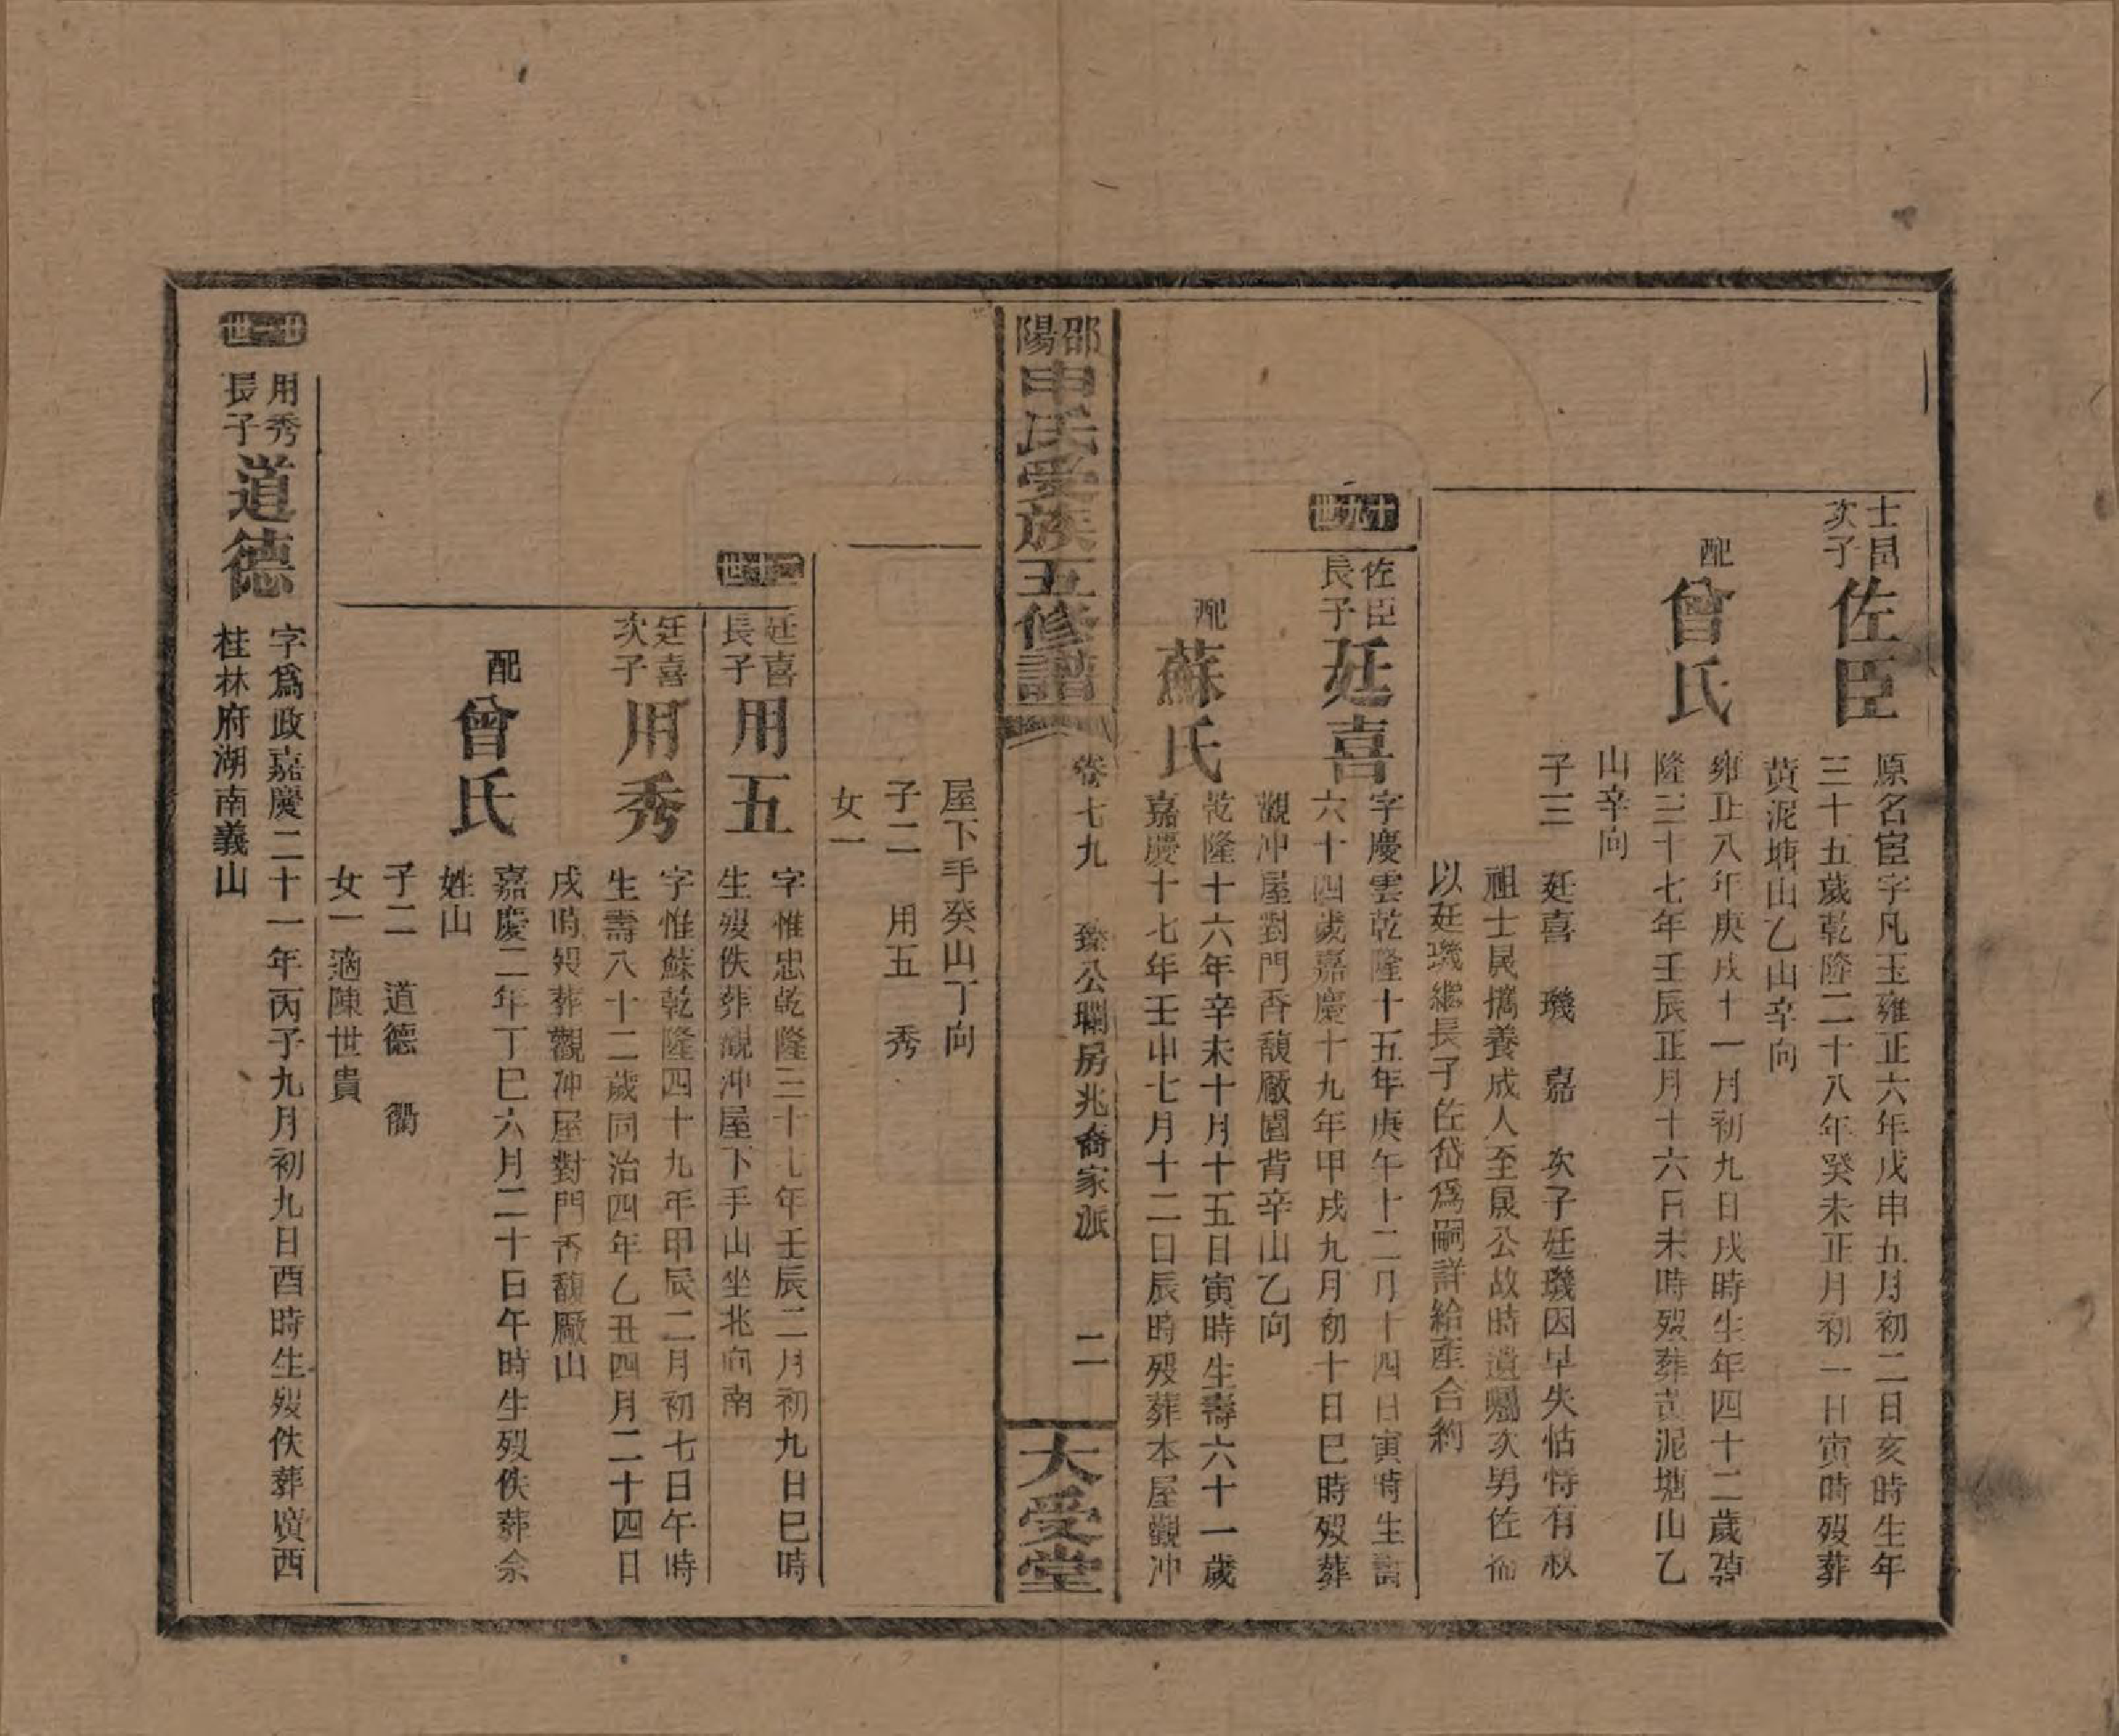 士昌
次子
佐臣
原名宦字凡玉雍正六年戊申五月初二日亥時生年
三十五歲乾隆二十八年癸未正月初一日寅時歿葬
黃泥塘山乙山辛向
配
曾氏
雍正八年庚戌十一月初九日戌時生年四十二歲
隆三十七年壬辰正月十六日未時歿葬黃泥塘山乙
山辛向
子三 廷喜 璣 嘉 次子廷璣因早失怙恃有叔
祖士晟撫養成人至晟公故時遺囑次男佐
以廷璣繼長子佐岱爲嗣詳給産合約
十九世
佐臣
長子
廷喜
字慶雲乾隆十五年庚午十二月十四日寅時生壽
六十四歲嘉慶十九年甲戌九月初十日巳時歿葬
觀冲屋對門香馥廠園背辛山乙向
配
蘇氏
乾隆十六年辛未十月十五日寅時生壽六十一歲
嘉慶十七年壬申七月十二日辰時歿葬本屋觀冲
邵陽
申氏受族五修譜
卷七九 臻公瓓房兆裔家派 二
大受堂
屋下手癸山丁向
子二 用五 秀
女一
二十世
廷喜
長子
用五
字惟忠乾隆三十七年壬辰二月初九日巳時
生歿佚葬觀冲屋下手山坐北向南
廷喜
次子
用秀
字惟蘇乾隆四十九年甲辰二月初七日午時
生壽八十二歲同治四年乙丑四月二十四日
戌時歿葬觀冲屋對門香馥廠山
配
曾氏
嘉慶二年丁巳六月二十日午時生歿佚葬佘
姓山
子二 道德 衢
女一適陳世貴
廿一世
用秀
長子
道德
字爲政嘉慶二十一年丙子九月初九日酉時生歿佚葬廣西
桂林府湖南義山